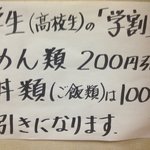 学生(高校生)の「学割」
めん類 200円引
丼類(ご飯類)は100
引きになります.